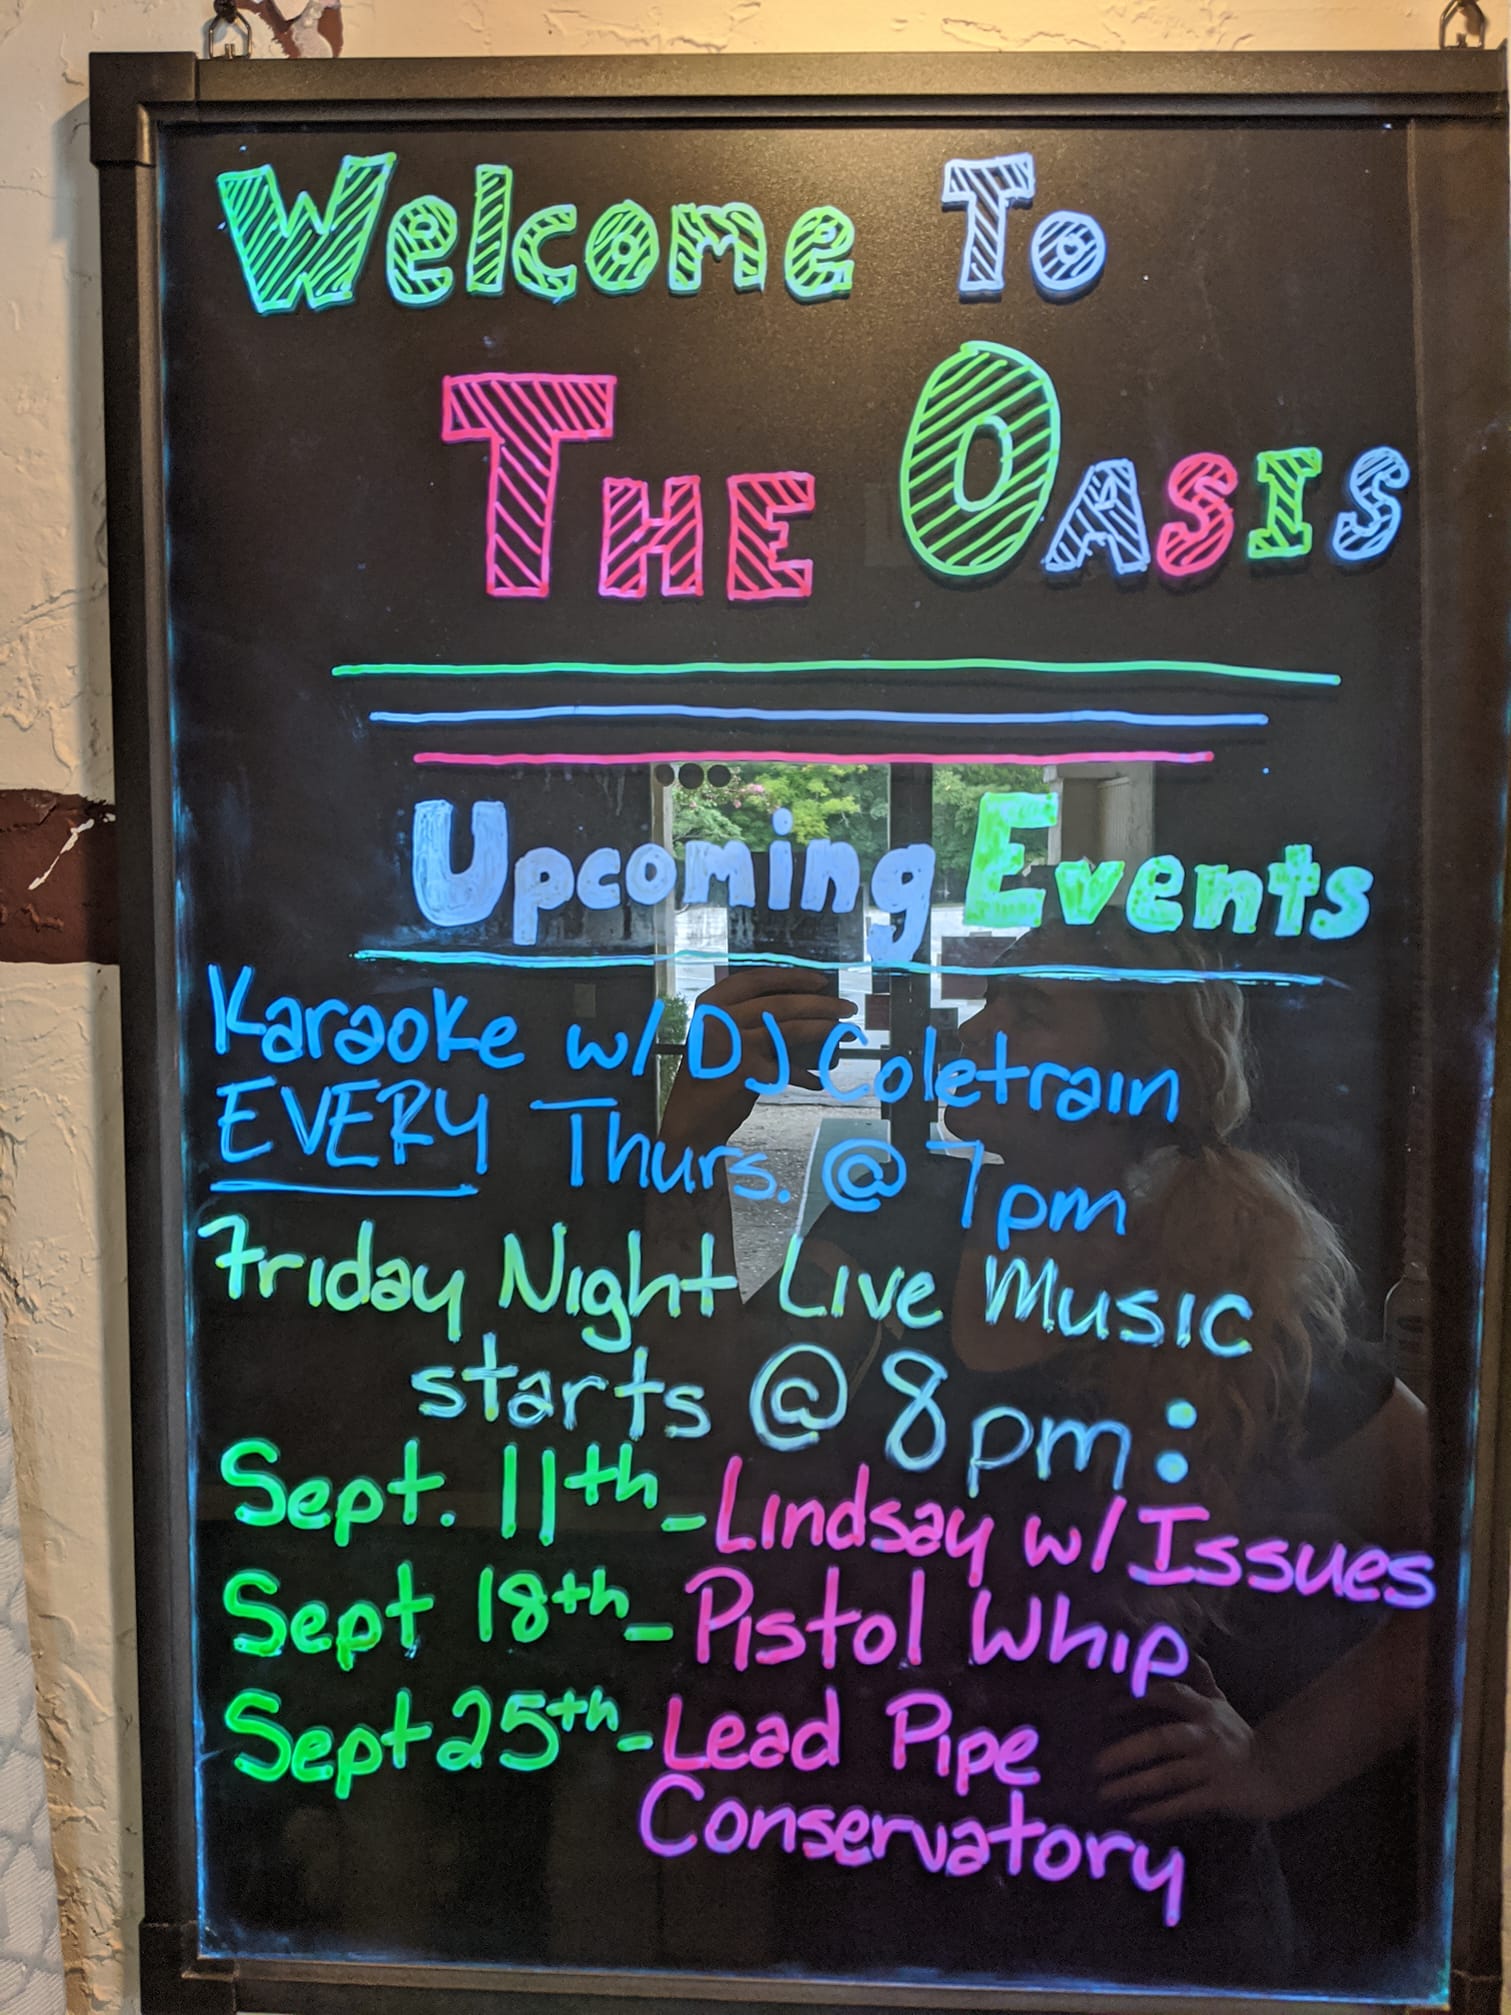 Welcome To
The Oasis
Upcoming Events
Karaoke w/ DJ Coletrain
EVERY Thurs. @ 7pm
Friday Night Live Music
starts @ 8pm:
Sept. 11th - Lindsay w/ Issues
Sept 18th - Pistol Whip
Sept 25th - Lead Pipe
Conservatory